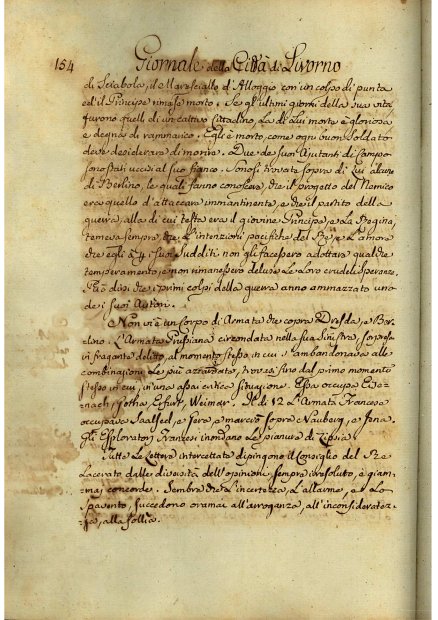 154 Giornale della Città di Livorno
di Sciabola, il Maresciallo d'Alloggio con un colpo di punta
ed il Principe rimase morto. Se gl'ultimi giorni della sua vita
furono quelli di un cattivo Cittadino, La di Lui morte è gloriosa
e degna di rammarico. Egli è morto, come ogni buon Soldato
deve desiderare di morire. Due de suoi Ajutanti di Campo
sono stati uccisi al suo fianco. Sonosi trovate sopra di Lui alcune
di Berlino, le quali fanno conoscere, che il progetto del Nemico
era quello d'attaccare immantinente, e che il partito della
guerra, alla di cui testa era il giovine Principe, e La Regina,
temeva sempre, che L'intenzioni pacifiche del Re, e L'amore
che egli à p. i suoi Sudditi non gli facessero adottare qualche
temperamento, e non rimanessero deluse Le Loro crudeli speranze.
Può dirsi che i primi colpi della guerra anno ammazzato uno
de i suoi Autori.
Non vi è un Corpo di Armata che copra Dresda, e Ber-
lino. L'Armata Prussiana circondata nella sua sinistra, sorpresa
in fragante delitto, al momento stesso in cui s'abbandonava alle
combinazioni Le più azzardate, trovasi fino dal primo momento
stesso in cui, in una assai critica situazione. Essa occupa Eise-
nach, Gotha, Erfurt, Weimar. Il dì 12 L'Armata Francese
occupava Saalfed, e Gera, e marciava sopra Nauberg, e Jena.
Gli Esploratori Francesi inondano Le pianure di Lipsia.
Tutte Le Lettere intercettate dipingono il Consiglio del Re
Lacerato dalla diversità dell'opinioni, sempre irresoluto, e giam-
mai concorde. Sembra che L'incertezza, L'allarme, e Lo
Spavento, succedono oramai all'arroganza, all'inconsideratez-
za, alla follia.